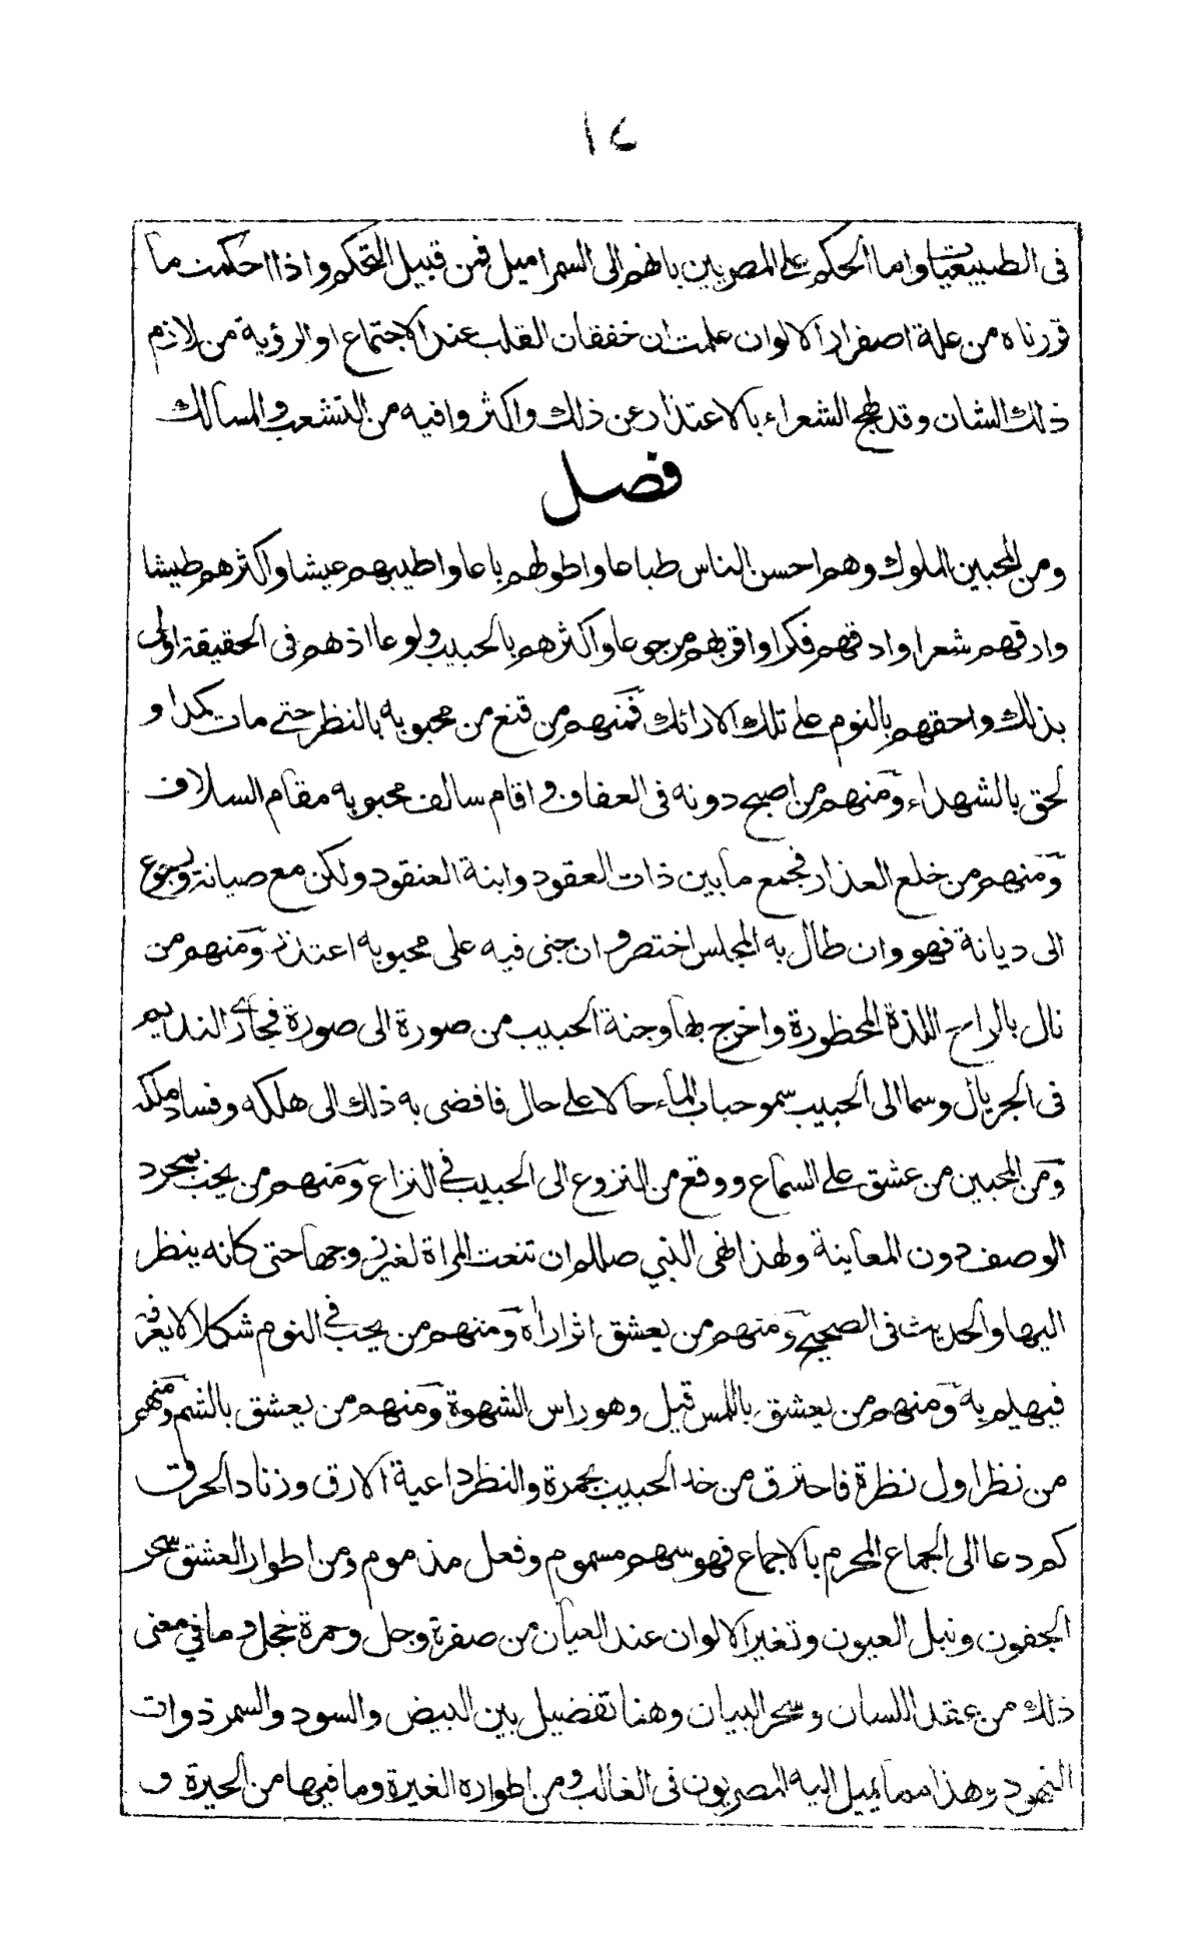 ١٤
فى الطبيعيات واما الحكم على المصريين بانهم الى السمر اميل فمن قبيل التحكم واذا احكمت ما
قررناه من علة اصفرار الالوان علمت ان خفقان القلب عند الاجتماع او الرؤية من لازم
ذلك الشان وقد لهج الشعراء بالاعتذار عن ذلك واكثروا فيه من التشعب والمسالك
فصل
ومن المحبين الملوك وهم احسن الناس طباعا واطولهم باعا واطيبهم عيشا واكثرهم طيشا
وادقهم شعرا وادقهم فكرا واقربهم مرجوعا واكثرهم بالحبيب ولوعا اذ هم فى الحقيقة اولى
بذلك واحقهم بالنوم على تلك الارائك فمنهم من قنع من محبوبه بالنظر حتى مات كمدا و
لحق بالشهداء ومنهم من اصبح دونه فى العفاف واقام سالف محبوبه مقام السلاف
ومنهم من خلع العذار فجمع ما بين ذات العقود وابنة العنقود ولكن مع صيانة ورجوع
الى ديانة فهو وان طال به المجلس اختصر وان جنى فيه على محبوبه اعتذر ومنهم من
نال بالراح اللذة المحظورة واخرج بها وجنة الحبيب من صورة الى صورة فجارى النديم
فى الجريال وسما الى الحبيب سمو حباب الماء حالا على حال فافضى به ذلك الى هلكه وفساد ملكه
ومن المحبين من عشق على السماع ووقع من النزوع الى الحبيب فى النزاع ومنهم من يحب بمجرد
الوصف دون المعاينة ولهذا نهى النبي صللم ان تنعت المراة لغير زوجها حتى كانه ينظر
اليها والحديث فى الصحيح ومنهم من يعشق اثرا رأه ومنهم من يحب فى النوم شكلا لا يعرفه
فيهيم به ومنهم من يعشق باللمس قيل وهو راس الشهوة ومنهم من يعشق بالشم ومنهم
من نظر اول نظرة فاحترق من خد الحبيب بجمرة والنظر داعية الارق وزناد الحرق
كم دعا الى الجماع المحرم بالاجماع فهو سهم مسموم وفعل مذموم ومن اطوار العشق سحر
الجفون ونبل العيون وتغير الالوان عند العيان من صفرة وجل وحمرة خجل وما فى معنى
ذلك من عقد اللسان وسحر البيان وهنا تفضيل بين البيض والسود والسمر ذوات
النهود وهذا مما يميل اليه المصريون فى الغالب ومن اطواره الغيرة وما فيها من الحيرة و